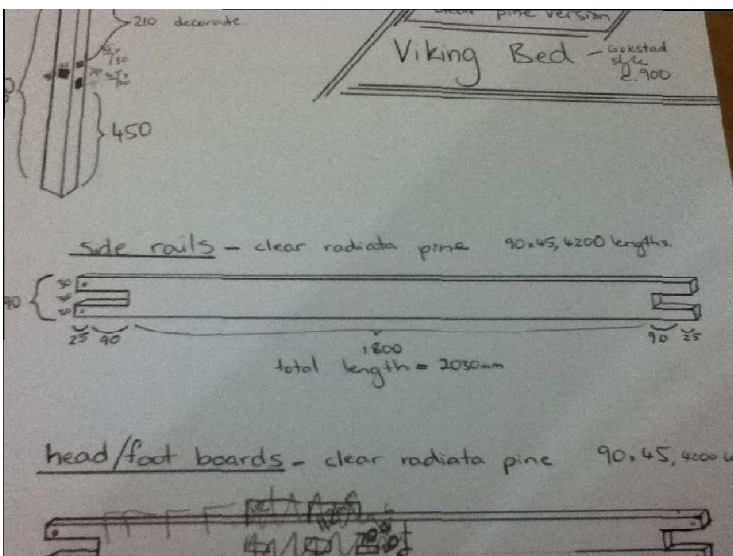 210 decorate
clear pine version
Viking Bed - Gokstad
style
2.900
450
side rails - clear radiata pine 90x45, 4200 lengths.
30
30
30
25 90
1800
90 25
total length = 2030mm
head/foot boards - clear radiata pine 90x45, 4200